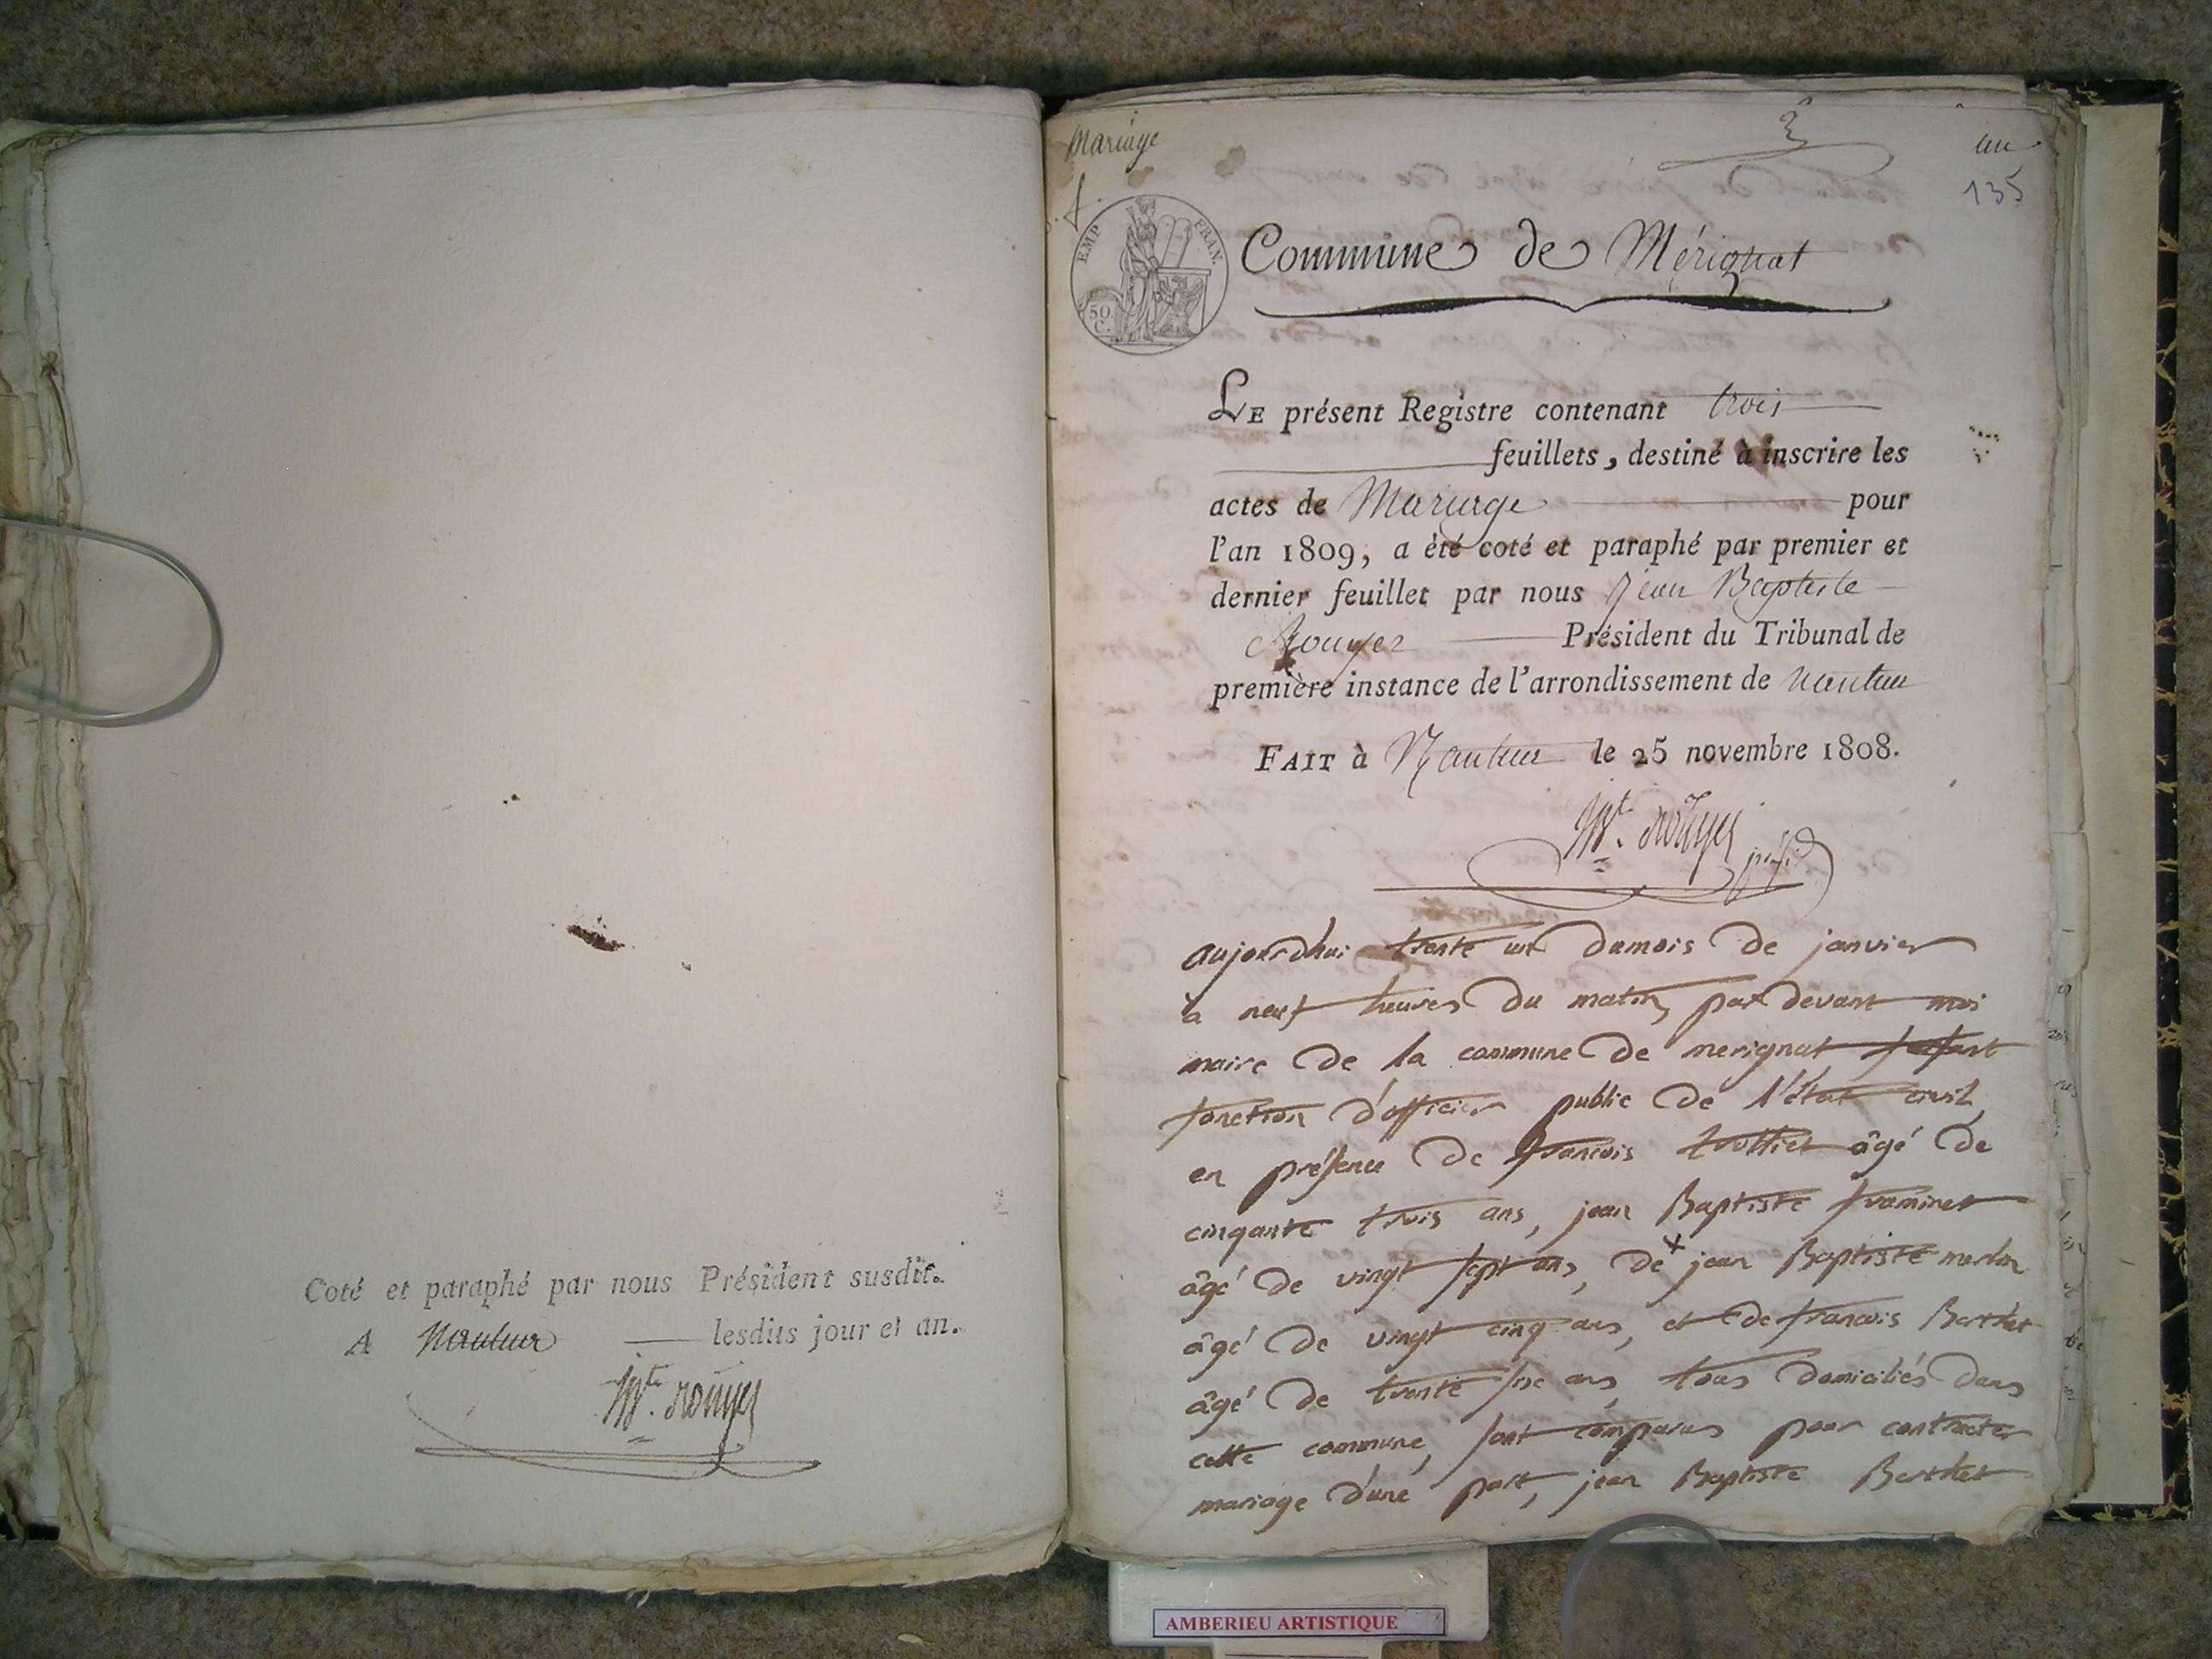 Coté et paraphé par nous Président susdit.
A Nantua lesdits jour et an.
Bte. Rouyer
Mariage
3
an
135
EMP FRAN.
50 C.
Commune de Mérignat
LE présent Registre contenant trois
feuillets, destiné à inscrire les
actes de Mariage pour
l'an 1809, a été coté et paraphé par premier et
dernier feuillet par nous Jean Baptiste
Rouyer Président du Tribunal de
première instance de l'arrondissement de Nantua
FAIT à Nantua le 25 novembre 1808.
Bte. Rouyer présid
aujourdhui trente un dumois de janvier
a neuf heures du matin, par devant moi
maire de la commune de merignat fesant
fonction d'officier public de l'état civil,
en présence de francois trottier âgé de
cinqante trois ans, jean Baptiste framinet
âgé de vingt sept ans, de jean Baptiste merlin
âgé de vingt cinq ans, et de francois Berthet
âgé de trente six ans, tous domiciliés dans
cette commune, sont comparus pour contracter
mariage d'une part, jean Baptiste Berthet
AMBERIEU ARTISTIQUE